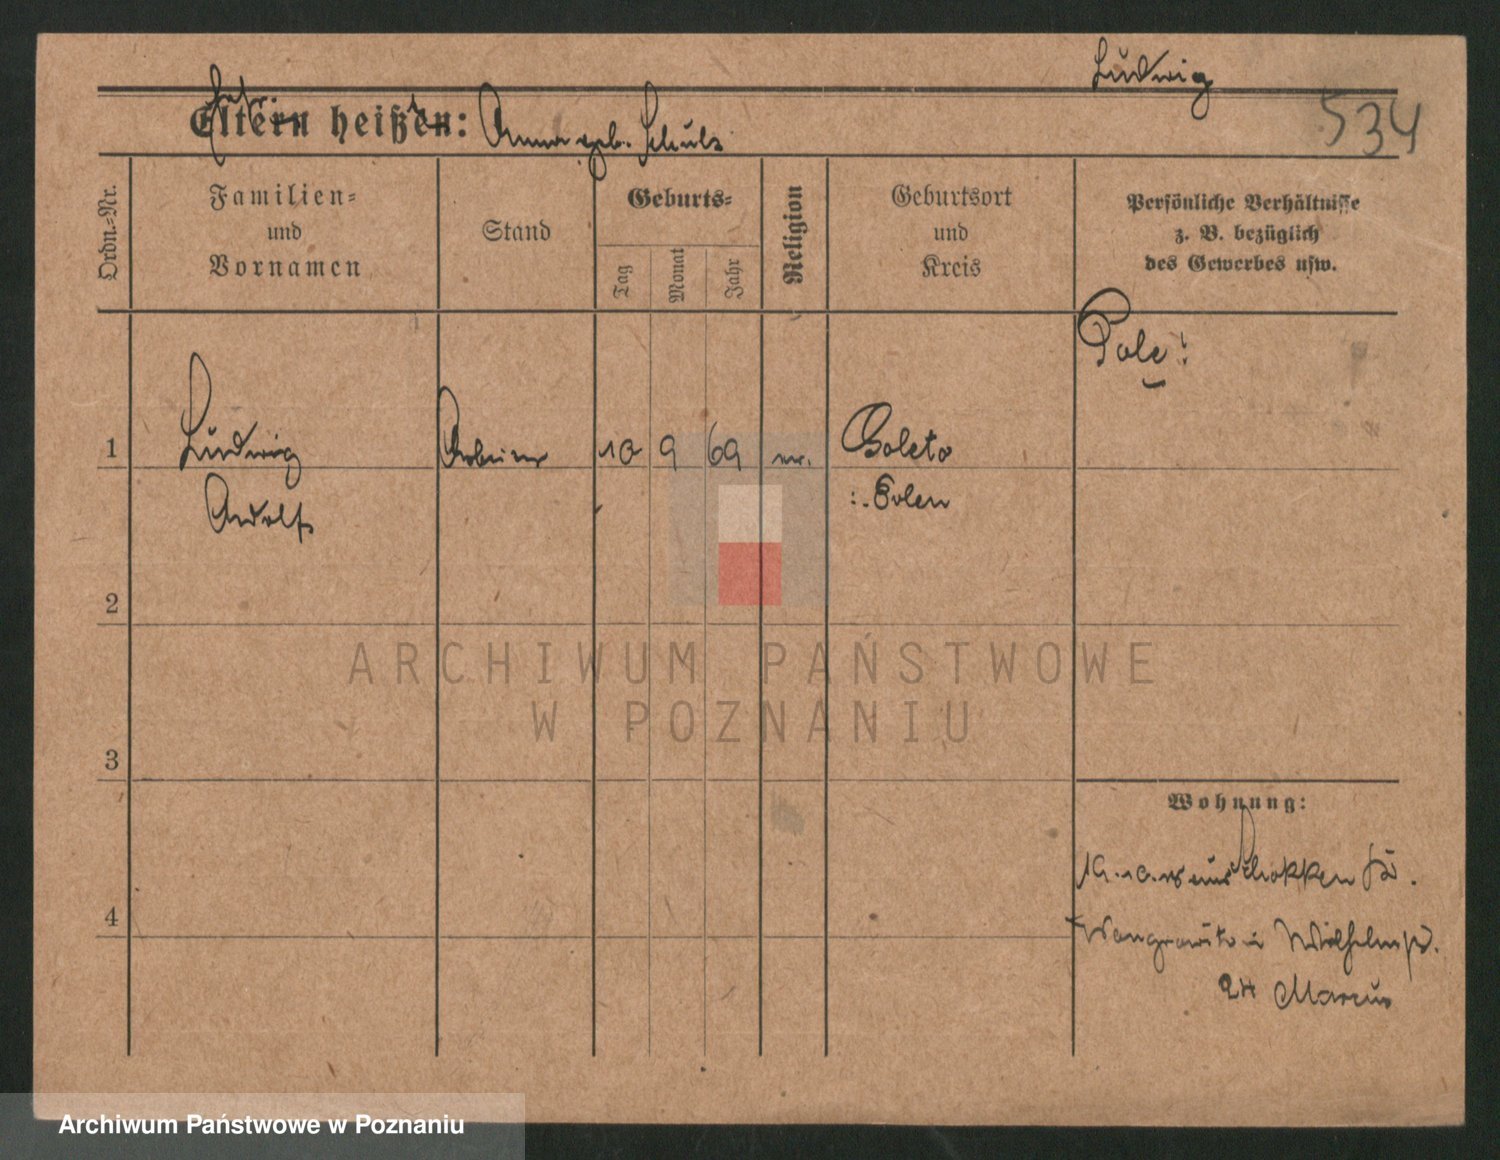 Ludwig
534
Eltern heißen: Anna geb. Schulz
Ordn.-Nr.
Familien-
und
Vornamen
Stand
Geburts-
Tag
Monat
Jahr
Religion
Geburtsort
und
Kreis
Persönliche Verhältnisse
z. B. bezüglich
des Gewerbes usw.
Pole!
1
Ludwig
Adolf
10 9 69
Polen
2
ARCHIWUM PAŃSTWOWE
W POZNANIU
3
Wohnung:
aus Schokken
4
Wilhelmpl.
24 Marcus
Archiwum Państwowe w Poznaniu